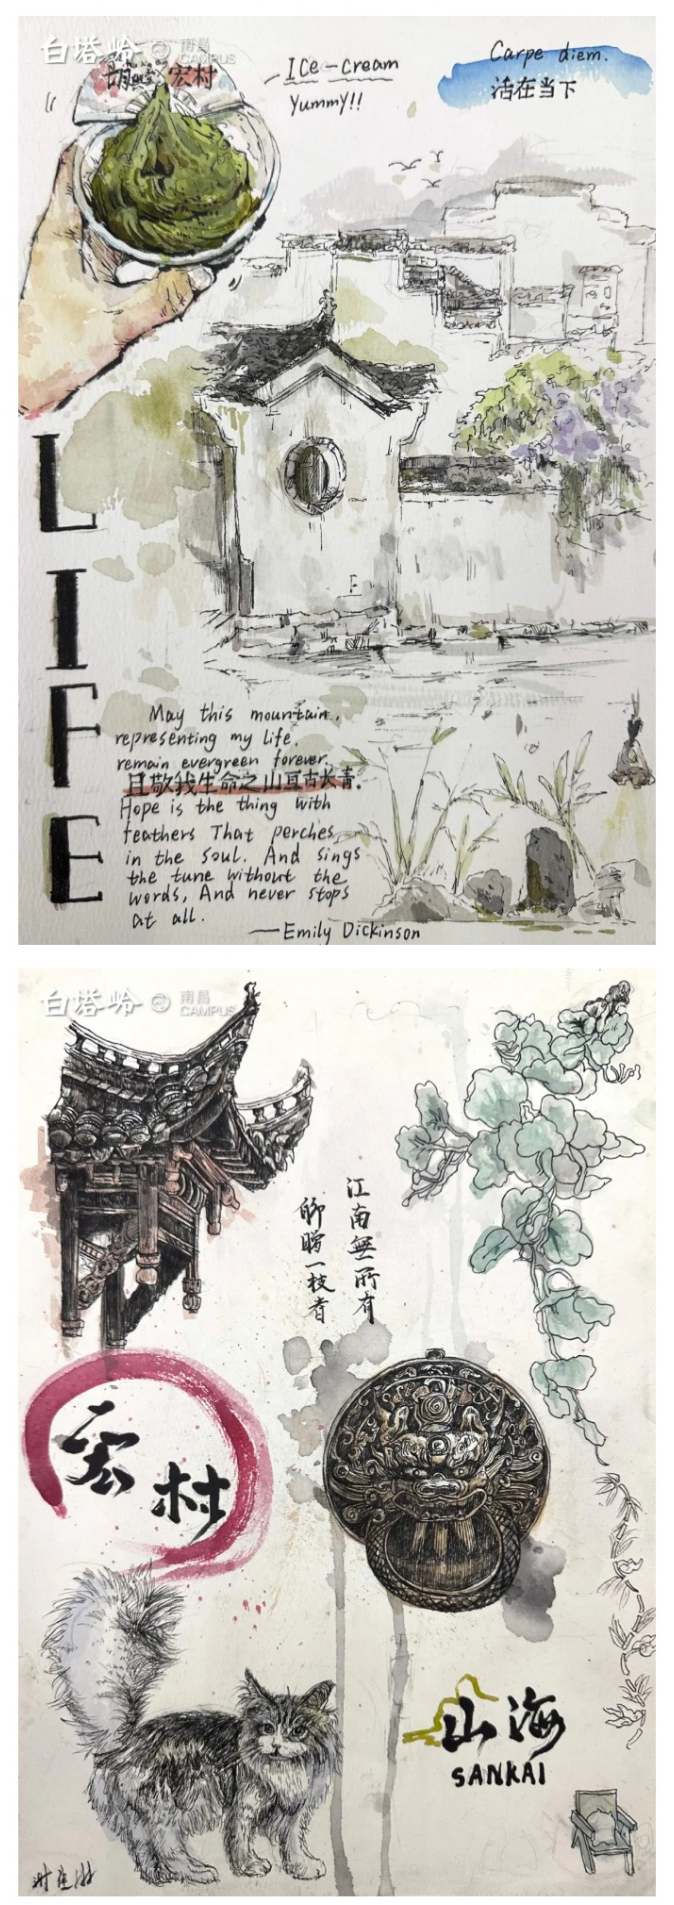 白塔岭 南昌 CAMPUS
宏村
Ice-cream
Yummy!!
Carpe diem.
活在当下
LIFE
May this mountain,
representing my life,
remain evergreen forever.
且敬我生命之山亘古长青.
Hope is the thing with
feathers That perches
in the soul. And sings
the tune without the
words, And never stops
at all.
—Emily Dickinson
白塔岭 南昌 CAMPUS
江南無所有
聊赠一枝春
宏村
山海
SANKAI